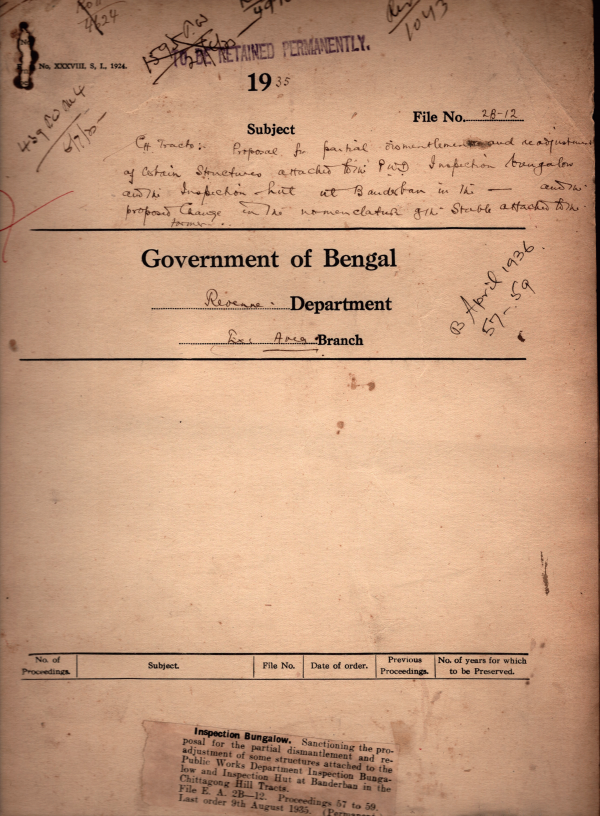 4624
1043
No. XXXVIII, S, L, 1924.
TO BE RETAINED PERMANENTLY.
1935
File No. 2B-12
Subject
C.H. Tracts: Proposal for partial dismantlement and readjustment
of certain structures attached to the P.W.D Inspection bungalow
and the Inspection hut at Banderban in the — and the
proposed change in the nomenclature of the Stable attached to the
former.
Government of Bengal
Revenue. Department
Ex: Area Branch
B April 1936.
57-59
No. of Proceedings.
Subject.
File No.
Date of order.
Previous Proceedings.
No. of years for which to be Preserved.
Inspection Bungalow. Sanctioning the pro-
posal for the partial dismantlement and re-
adjustment of some structures attached to the
Public Works Department Inspection Bunga-
low and Inspection Hut at Banderban in the
Chittagong Hill Tracts.
File E. A. 2B—12. Proceedings 57 to 59.
Last order 9th August 1935. (Permanent